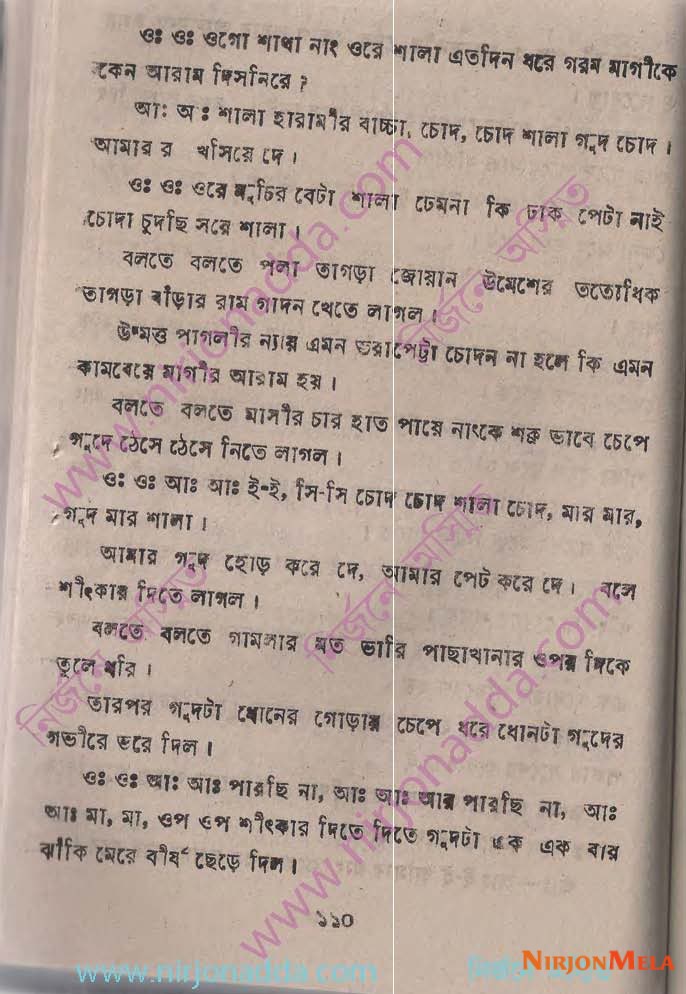 ওঃ ওঃ ওগো শাখা নাং ওরে শালা এতদিন ধরে গরম মাগীকে
কেন আরাম দিসনিরে ?
আঃ অঃ শালা হারামীর বাচ্চা, চোদ, চোদ শালা গুদ চোদ ।
আমার র খসিয়ে দে ।
ওঃ ওঃ ওরে মুচির বেটা শালা ঢেমনা কি ঢাক পেটা নাই
চোদা চুদছি সরে শালা ।
বলতে বলতে পলা তাগড়া জোয়ান উমেশের ততোধিক
তাগড়া বাঁড়ার রাম গাদন খেতে লাগল ।
উন্মত্ত পাগলীর ন্যায় এমন ভরাপেট্টা চোদন না হলে কি এমন
কামবেয়ে মাগীর আরাম হয় ।
বলতে বলতে মাসীর চার হাত পায়ে নাংকে শক্ত ভাবে চেপে
গুদে ঠেসে ঠেসে নিতে লাগল ।
ওঃ ওঃ আঃ আঃ ই-ই, সি-সি চোদ চোদ শালা চোদ, মার মার,
গুদ মার শালা ।
আমার গুদ হোড় করে দে, আমার পেট করে দে । বলে
শীৎকার দিতে লাগল ।
বলতে বলতে গামলার মত ভারি পাছাখানার ওপর দিকে
তুলে ধরি ।
তারপর গুদটা ধোনের গোড়ায় চেপে ধরে ধোনটা গুদের
গভীরে ভরে দিল ।
ওঃ ওঃ আঃ আঃ পারছি না, আঃ আঃ আর পারছি না, আঃ
আঃ মা, মা, ওপ ওপ শীৎকার দিতে দিতে গুদটা এক এক বার
ঝাঁকি মেরে বীর্য ছেড়ে দিল ।
১১০
www.nirjonadda.com
নির্জনে অস্মিত
www.nirjonadda.com
নির্জনে অস্মিত
নির্জনে অস্মিত
www.nirjonadda.com
NIRJONMELA